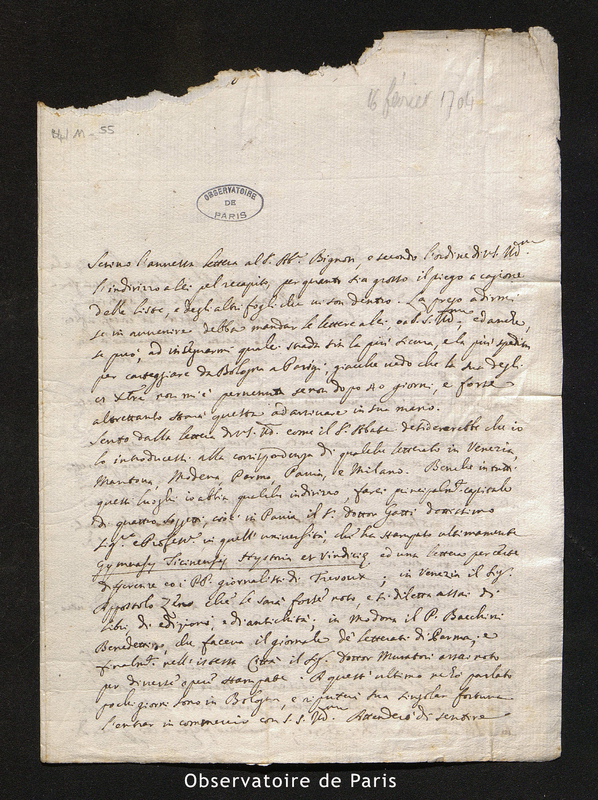 16 février 1704
55
OBSERVATOIRE
DE
PARIS
l'annessa lettera al S. Ab. Bignon, e secondo l'ordine di V.S.
l'indirizzo a lei pel recapito, per quanto sia grosso il piego a cagione
delle liste, e degli altri fogli che vi son dentro. La prego a dirmi
se in avvenire debba mandar le lettere a lei, ed anche,
se può, ad insegnarmi quale strada sia la più sicura, e la più spedita
per carteggiare da Bologna a Parigi, giacche vedo che la sua degli
non mi è pervenuta se non dopo 40 giorni, e forse
altrettanto starà questa ad arrivare in sua mano.
Sento dalla lettera di V.S. come il S. Abate desidererebbe che io
lo introducessi alla corrispondenza di qualche letterato in Venezia,
Mantova, Modena, Parma, Pavia, e Milano. Benche in tutti
questi luoghi io abbia qualche indirizzo, farei capitale
di quattro soggetti, cioè in Pavia il S. Dottor Gatti dottissimo
e Profess. in quell'università che ha stampato ultimamente
Gymnasij Ticinensis Hystoria et Vindiciæ ed una lettera
di Firenze ed i PP. giornalisti di Trevoux; in Venezia il Sig.
Appostolo Zeno, che le sarà forse noto, e si diletta assai di
libri di edizioni e di antichità; in Modona il P. Bacchini
Benedettino, che faceva il giornale de' letterati di Parma, e
nell'istessa Città il Sig. Dottor Muratori assai noto
per diverse opere stampate. A quest'ultimo ne ho parlato
pochi giorni sono in Bologna, e riputerà sua singolar fortuna
l'entrar in commercio con S.S. Attenderò di sentire
Observatoire de Paris